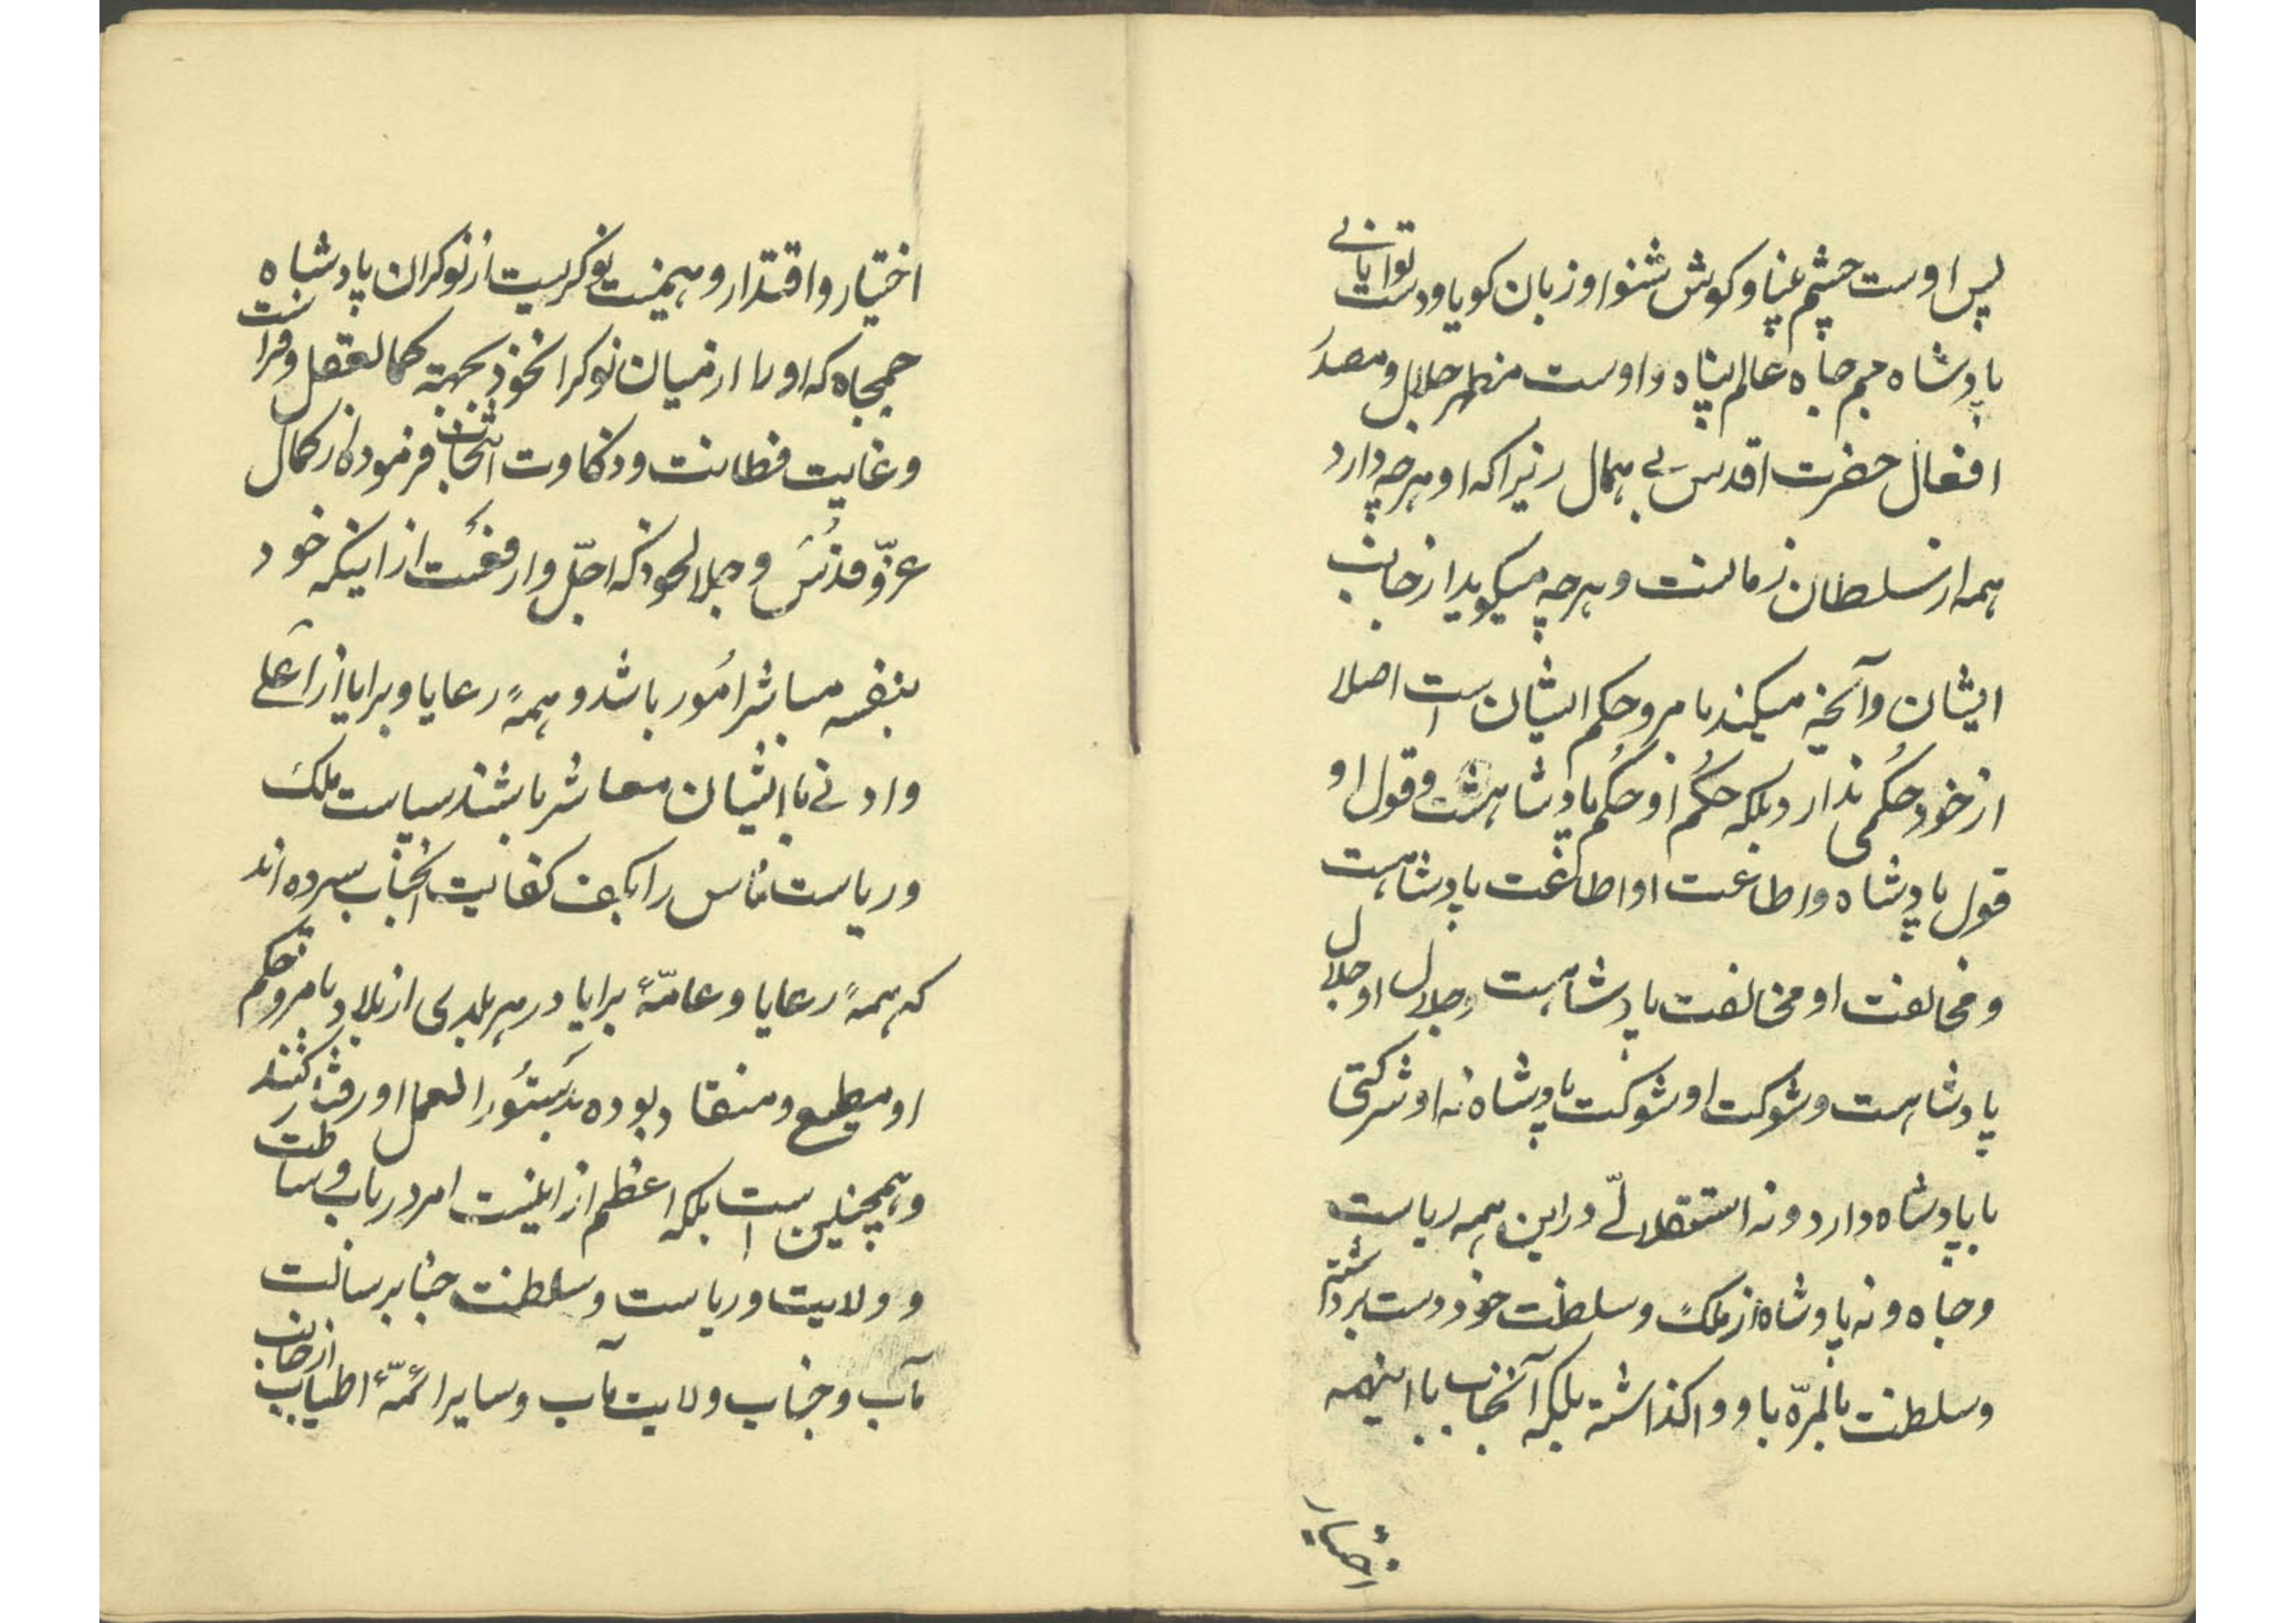 پس اوست چشم بینا و کوش شنوا و زبان کویا و دست توانای
پادشاه جم جاه عالم پناه و اوست مظهر جلال و مصدر
افعال حضرت اقدس بی همال زیرا که او هرچه دارد
همه از سلطان زمانست و هرچه میکوید از جانب
ایشان و آنچه میکند بامر و حکم ایشان است اصلا
از خود حکمی ندارد بلکه حکم او حکم پادشاهست و قول او
قول پادشاه و اطاعت او اطاعت پادشاهست
و مخالفت او مخالفت پادشاهست و جلال او جلال
پادشاهست و شوکت او شوکت پادشاه نه او شرکتی
با پادشاه دارد و نه استقلالی در این همه ریاست
و جاه و نه پادشاه از ملک و سلطنت خود دست برداشته
و سلطنت بالمرّه باو واکذاشته بلکه آنجناب با اینهمه
اختیار
اختیار و اقتدار و همینت نوکریست از نوکران پادشاه
جمجاه که او را از میان نوکران خود بجهة کمال عقل و فراست
و غایت فطانت و ذکاوت انتخاب فرموده از کمال
عزّ و قدس و جلال خود که اجلّ و ارفعست از اینکه خود
بنفسه مباشر امور باشد و همهٔ رعایا و برایا از اعلی
و ادنی با ایشان معاشر باشند سیاست ملک
و ریاست ناس را بکف کفایت آنجناب سپرده اند
که همهٔ رعایا و عامّهٔ برایا در هر بلدی از بلاد بامر و حکم
او مطیع و منقاد بوده بدستور العمل او رفتار کنند
و همچنین است بلکه اعظم از اینست امر در باب وساطت
و ولایت و ریاست و سلطنت جناب رسالت
مآب و جناب ولایت مآب و سایر ائمّهٔ اطیاب از جانب